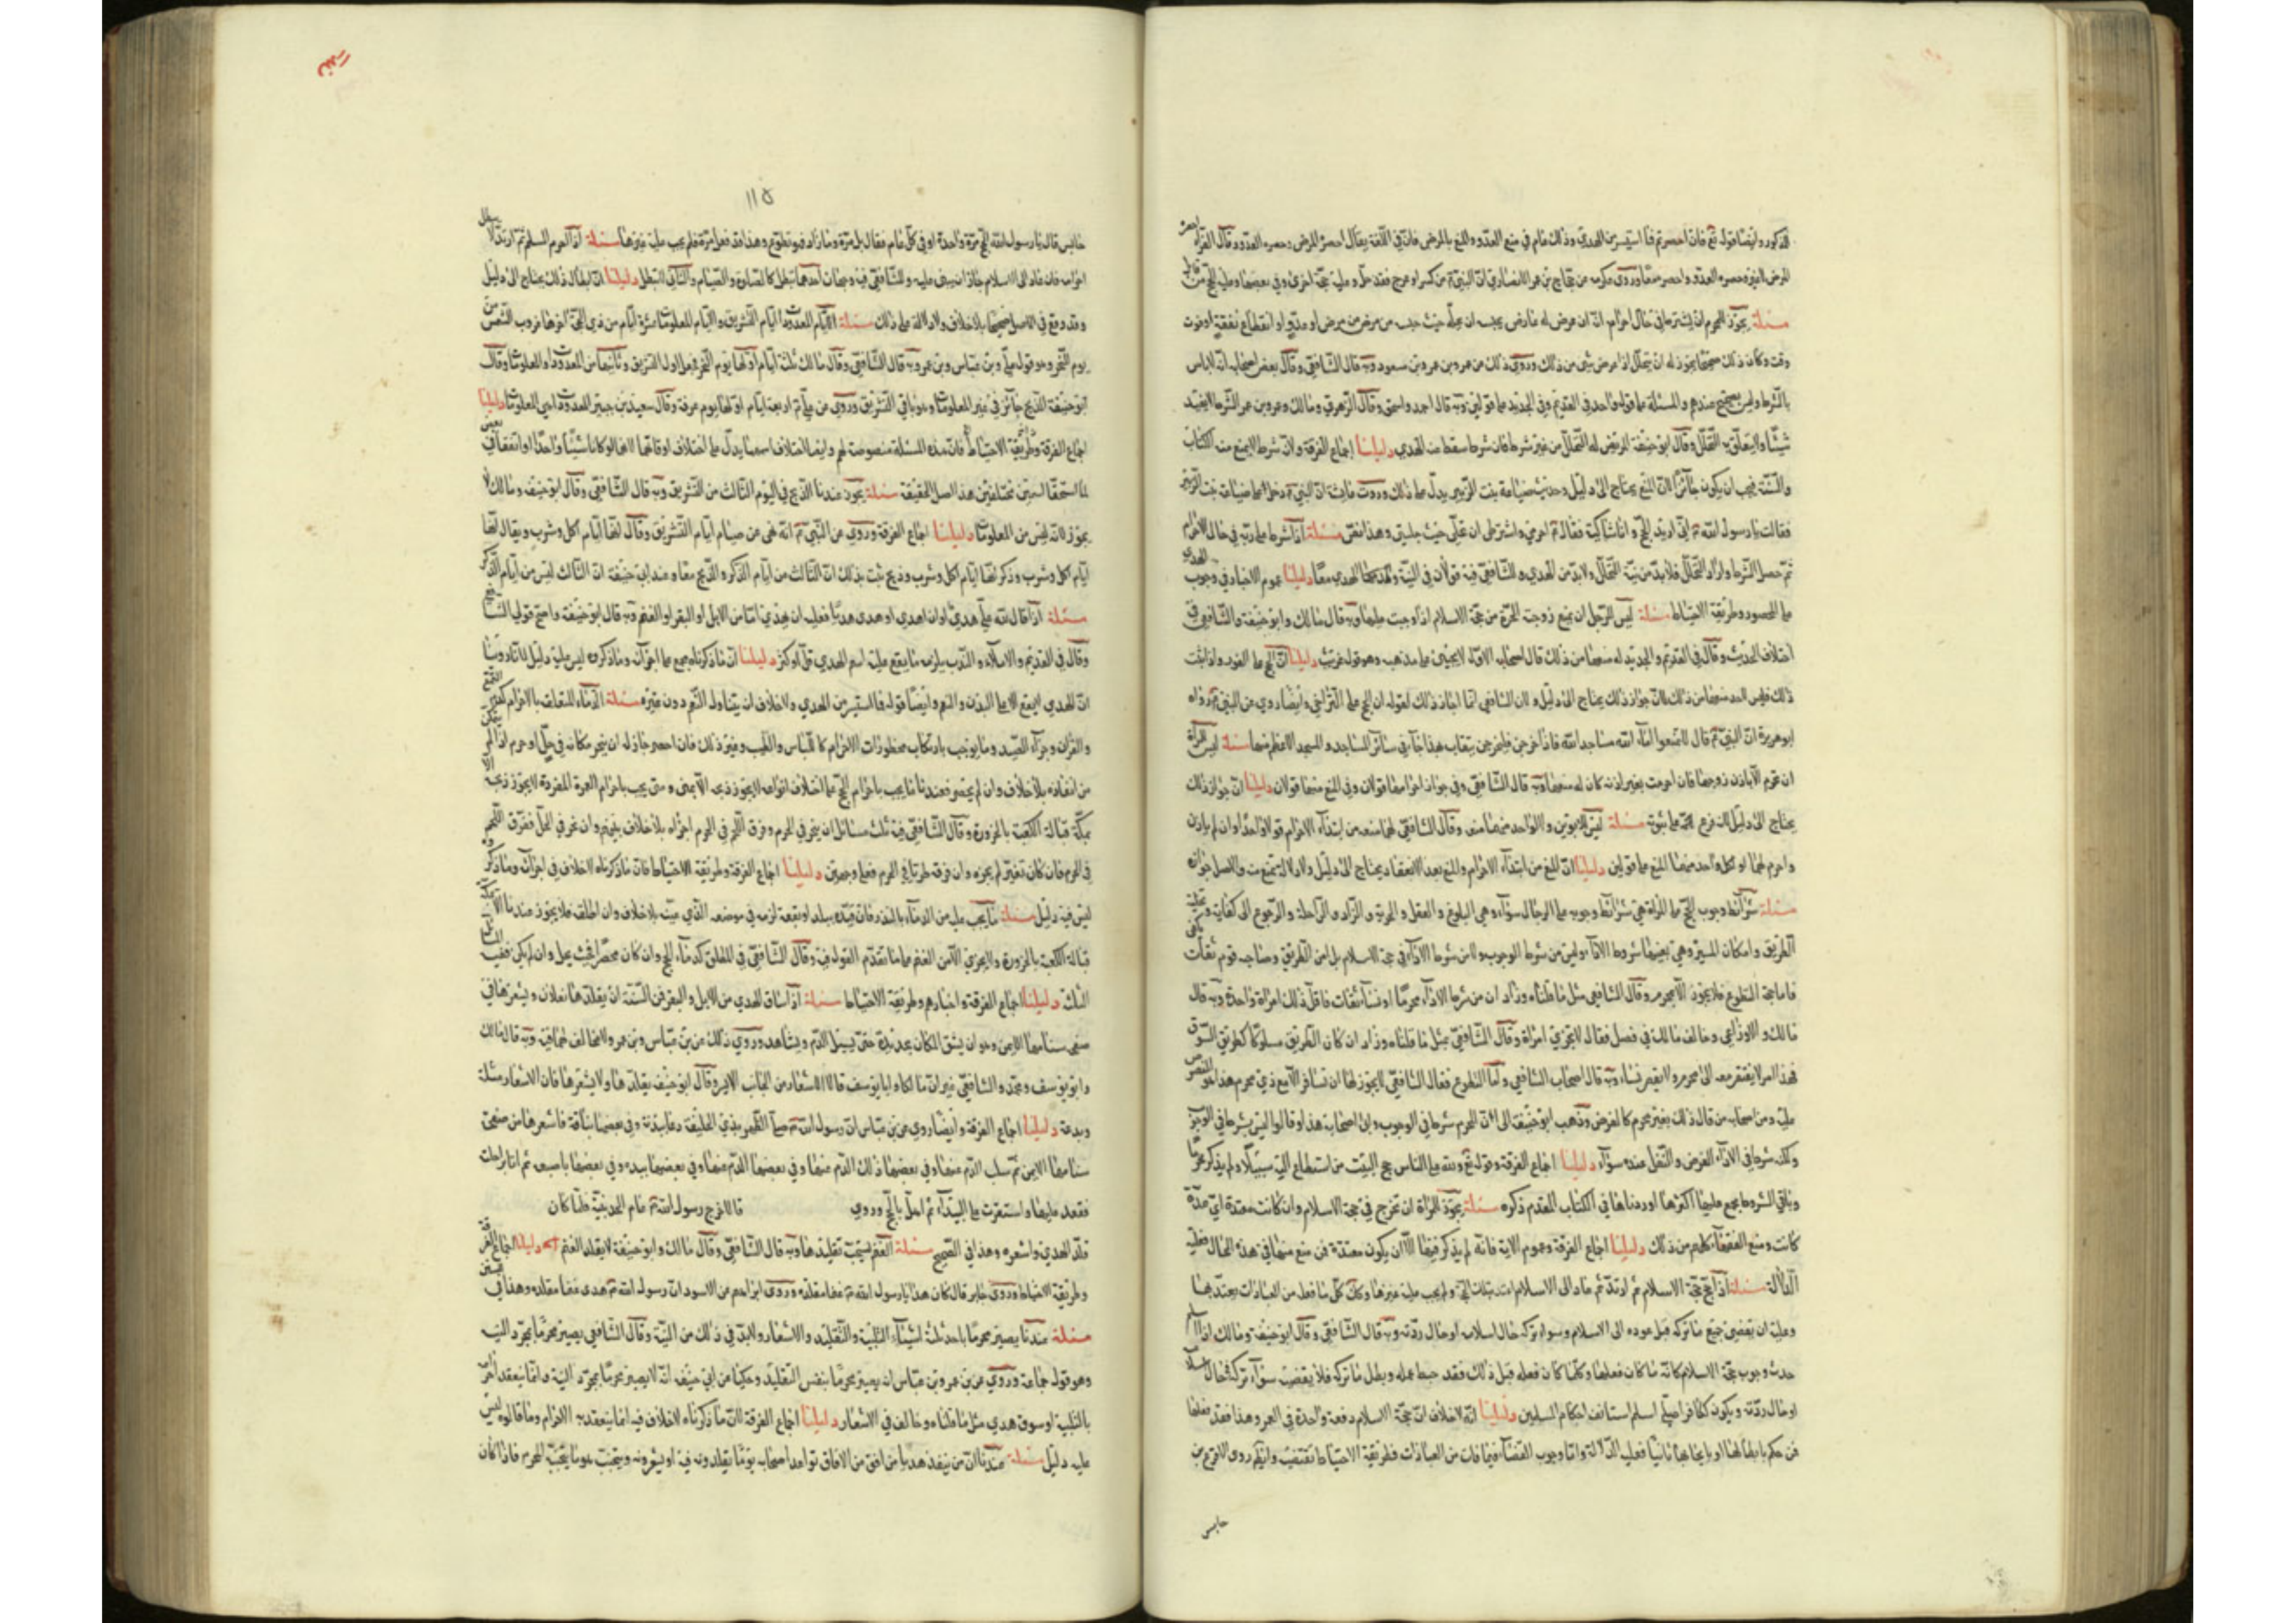 المذكور وايضا قوله تع فان احصرتم فما استيسر من الهدي وذلك عام في منع العدو والمنع بالمرض فان في اللغة يقال احصره المرض وحصره العدو وقال الفراء احصره
المرض لاغير وحصره العدو واحصر معا وروى عكرمه عن حجاج بن عمرو الانصاري ان النبي ص من كسر او عرج فقد حل وعليه حجة اخرى وفي بعضها وعليه الحج من قابل
مسئلة يجوز للمحرم ان يشترط في حال احرامه انه ان عرض له عارض يحبسه ان يحله حيث حبسه من مرض او عدو او انقطاع نفقة او فوت
وقت وكان ذلك صحيحا يجوز له ان يتحلل اذا عرض شئ من ذلك وروي ذلك عن عمر وبن عمر وبن مسعود وبه قال الشافعي وقال بعض اصحابه انه لا باس
بالشرط وليس بصحيح عندهم والمسئلة على قول واحد في القديم وفي الجديد على قولين وبه قال احمد واسحق وقال الزهري ومالك وبن عمر الشرط لا يفيد
شيئا ولا يتعلق به التحلل وقال ابو حنيفة المريض له التحلل من غير شرط فان شرط سقط عنه الهدي دليلنا اجماع الفرقة ولانه شرط لا يمنع منه الكتاب
والسنة فيجب ان يكون جائزا لان المنع يحتاج الى دليل وحديث ضباعة بنت الزبير يدل على ذلك وروت عايشة ان النبي ص دخل على ضباعة بنت الزبير
فقالت يا رسول الله ص اني اريد الحج وانا شاكية فقال ص احرمي واشترطي ان تحلني حيث حبستني وهذا نص مسئلة اذا شرط على ربه في حال الاحرام
ثم حصل الشرط واراد التحلل فلا بد من نية التحلل ولا بد من الهدي وللشافعي فيه قولان في النية والهدي معا دليلنا عموم الاخبار في وجوب الهدي
على المحصور وطريقة الاحتياط مسئلة ليس للرجل ان يمنع زوجته الحرة من حجة الاسلام اذا وجبت عليها وبه قال مالك وابو حنيفة والشافعي في
اختلاف الحديث وقال في القديم والجديد له منعها من ذلك قال اصحابه الاول لا يجيئ على مذهبه وهو قول غريب دليلنا ان الحج على الفور واذا ثبت
ذلك فليس لاحد منعها من ذلك لان جواز ذلك يحتاج الى دليل ولان الشافعي انما اجاز ذلك لقوله ان الحج على التراخي وايضا روي عن النبي ص رواه
ابو هريرة ان النبي ص قال لا تمنعوا اماء الله مساجد الله فاذا خرجن فليخرجن تفلات هذا جاء في سائر المساجد والمسجد الاعظم منها مسئلة ليس للمراة
ان تحرم الا باذن زوجها فان احرمت بغير اذنه كان له منعها وبه قال الشافعي وفي جواز احرامها قولان وفي المنع منها قولان دليلنا ان جواز ذلك
يحتاج الى دليل لانه فرع على ثبوته مسئلة ليس للابوين ولا لواحد منهما منعه وقال الشافعي لهما منعه من ابتداء الاحرام قولا واحدا وان لم ياذن
واحرم لهما او لكل واحد منهما المنع على قولين دليلنا ان المنع من ابتداء الاحرام والمنع بعد الانعقاد يحتاج الى دليل ولا دلالة تمنع منه والاصل جوازه
مسئلة شرائط وجوب الحج على المراة هي شرائط وجوبه على الرجال سواء وهي البلوغ والعقل والحرية والزاد والراحلة والرجوع الى كفاية وتخلية
الطريق وامكان المسير وهي بعينها شروط الاداء وليس من شرط الوجوب ولا من شرط الاداء في حجة الاسلام بل امن الطريق ومصاحبة قوم ثقات كافي
فاما حجة التطوع فلا يجوز الا بمحرم وقال الشافعي مثل ما قلناه وزاد ان من شرط الاداء محرما او نساء ثقات فاقل ذلك امراة واحدة وبه قال
مالك والاوزاعي وخالف مالك في فصل فقال لا تجزي امراة وقال الشافعي بمثل ما قلناه وزاد ان كان الطريق مسلوكا كطريق السوق
فهذا امر لا يفتقر معه الى محرم ولا بغير نساء وبه قال اصحاب الشافعي واما التطوع فقال الشافعي لا يجوز لها ان تسافر الا مع ذي محرم هذا هو المنصوص
عليه ومن اصحابه من قال ذلك بغير محرم كالفرض وذهب ابو حنيفة الى ان المحرم شرط في الوجوب وابى اصحابه هذا وقالوا ليس بشرط في الوجوب
ولكنه شرط في الاداء الفرض والنفل عنده سواء دليلنا اجماع الفرقة وقوله تع ولله على الناس حج البيت من استطاع اليه سبيلا ولم يذكر محرما
وباقي الشروط مجمع عليها اكثرها اوردناها في الكتاب المقدم ذكره مسئلة يجوز للمراة ان تخرج في حجة الاسلام وان كانت معتدة اي عدة
كانت ومنع الفقهاء كلهم من ذلك دليلنا اجماع الفرقة وعموم الاية فانه لم يذكر فيها الا ان يكون معتدة فمن منع منها في هذه الحال فعليه
الدلالة مسئلة اذا حج حجة الاسلام ثم ارتد ثم عاد الى الاسلام اعتد بتلك الحجة ولم يجب عليه غيرها وكذلك كل ما فعل من العبادات يعتد بها
وعليه ان يقضي جميع ما تركه قبل عوده الى الاسلام وسواء تركه حال اسلامه او حال ردته وبه قال الشافعي وقال ابو حنيفة ومالك اذا اسلم
حدث وجوب حجة الاسلام كانه ما كان فعلها وكلما كان فعله قبل ذلك فقد حبط عمله وبطل ما تركه فلا يقضيه سواء تركه في حال اسلامه
او حال ردته ويكون ككافر اصلي اسلم استانف احكام المسلمين دليلنا انه لا خلاف ان حجة الاسلام دفعة واحدة في العمر وهذا فقد فعلها
فمن حكم بابطالها او بايجابها ثانيا فعليه الدلالة واما وجوب القضاء فيما فات من العبادات فطريقة الاحتياط تقتضيه وايضا روى الاقرع بن
حابس
١١٥
حابس قال يا رسول الله الحج مرة واحدة او في كل عام فقال بل مرة وما زاد فهو تطوع وهذا قد فعل مرة فلم يجب عليه غيرها مسئلة اذا احرم المسلم ثم ارتد لا يبطل
احرامه فان عاد الى الاسلام جاز ان يبني عليه وللشافعي فيه وجهان احدهما تبطل كالصلوة والصيام والثاني لا تبطل دليلنا ان ابطال ذلك يحتاج الى دليل
وقد وقع في الاصل صحيحا بلا خلاف ولا دلالة على ذلك مسئلة الايام المعدودات ايام التشريق والايام المعلومات عشرة ايام من ذي الحجة اخرها غروب الشمس من
يوم النحر وهو قول علي وبن عباس وبن عمر وبه قال الشافعي وقال مالك ثلثة ايام اولها يوم النحر فجعل اول التشريق وثانيها من المعدودات والمعلومات وقال
ابو حنيفة الذبح جائز في غير المعلومات وهو باقي التشريق وروي عن علي ع اربعة ايام اولها يوم عرفة وقال سعيد بن جبير المعدودات هي المعلومات دليلنا
اجماع الفرقة وطريقة الاحتياط فان هذه المسئلة منصوصة لهم وايضا اختلاف اسمها يدل على اختلاف اوقاتها لانها لو كانا شيئا واحدا او اتفقا في بعض
لما استحقا اسمين مختلفين هذا اصل الحقيقة مسئلة يجوز عندنا الذبح في اليوم الثالث من التشريق وبه قال الشافعي وقال ابو حنيفة ومالك لا
يجوز لانه ليس من المعلومات دليلنا اجماع الفرقة وروي عن النبي ص انه نهى عن صيام ايام التشريق وقال انها ايام اكل وشرب ويقال انها
ايام اكل وشرب وذكر انها ايام اكل وشرب وذبح ثبت بذلك ان الثالث من ايام الذكر والذبح معا وعند ابي حنيفة ان الثالث ليس من ايام الذكر
مسئلة اذا قال لله علي هدي او ان اهدي او هدى هديا فعليه ان يهدي اما من الابل او البقر او الغنم وبه قال ابو حنيفة واصح قولي الشافعي
وقال في القديم والاملاء والنذر يلزمه ما يقع عليه اسم الهدي قل او كثر دليلنا ان ما ذكرناه مجمع على اجزائه وما ذكروه ليس عليه دليل
ان الهدي لا يقع الا على البدن والنعم وايضا قوله فما استيسر من الهدي ولا خلاف ان يتناول النعم دون غيره مسئلة الدماء المتعلقة بالاحرام كدم التمتع
والقران وجزاء الصيد وما يوجب بارتكاب محظورات الاحرام كاللباس والطيب وغير ذلك فان احصر جاز له ان ينحر مكانه في حل او حرم اذا لم يتمكن
من انفاذه بلا خلاف وان لم يحصر فعندنا ما يجب باحرام الحج على اختلاف انواعه لا يجوز ذبحه الا بمنى وما يجب باحرام العمرة المفردة لا يجوز ذبحه الا
بمكة قبالة الكعبة بالحزورة وقال الشافعي فيه ثلث مسائل ان ينحر في الحرم وفرق اللحم في الحرم اجزاه بلا خلاف بينهم وان نحر في الحل ففرق اللحم
في الحرم فان كان تغير لم يجزه وان فرقه طريا في الحرم فعلى وجهين دليلنا اجماع الفرقة وطريقة الاحتياط فان ما ذكرناه لا خلاف في اجزائه وما ذكروه
ليس فيه دليل مسئلة ما يجب عليه من الدماء بالنذر فان قيده ببلد او بقعة لزمه في موضعه الذي عينه بلا خلاف وان اطلقه فلا يجوز عندنا الا بمكة
قبالة الكعبة بالحزورة ولا يجزي الا من الغنم على ما تقدم القول فيه وقال الشافعي في المطلق كدماء الحج وان كان محصرا فحيث يحل وان لم يكن ففيه المسائل
الثلث دليلنا اجماع الفرقة واخبارهم وطريقة الاحتياط مسئلة اذا ساق الهدي من الابل والبقر فمن السنة ان يقلدها نعلان ويشعرها في
صفحة سنامها الايمن وهو ان يشق المكان بحديدة حتى يسيل الدم ويشاهد وروي ذلك عن بن عباس وبن عمر ولا مخالف لهما فيه وبه قال مالك
وابو يوسف ومحمد والشافعي غير ان مالكا وابا يوسف قالا الاشعار من الجانب الايسر وقال ابو حنيفة يقلدها ولا يشعرها فان الاشعار مثلة
وبدعة دليلنا اجماع الفرقة وايضا روي عن بن عباس ان رسول الله ص صلى الظهر بذي الحليفة دعا ببدنة وفي بعضها بناقة فاشعرها من صفحة
سنامها الايمن ثم سلت الدم عنها وفي بعضها ذلك الدم عنها وفي بعضها الدم عنها وفي بعضها بيده وفي بعضها باصبعه ثم اتا براحلته
فقعد عليها واستقرت على البيداء ثم اهل بالحج وروي قالا خرج رسول الله ص عام الحديبية فلما كان
قلد الهدي واشعره وهذا في الصحيح مسئلة الغنم يستحب تقليدها وبه قال الشافعي وقال مالك وابو حنيفة لا يقلد الغنم دليلنا اجماع الفرقة
وطريقة الاحتياط وروى جابر قال كان هدايا رسول الله ص غنما مقلده وروى ابراهيم عن الاسود ان رسول الله ص هدى غنما مقلده وهذا في
مسئلة عندنا يصير محرما باحد ثلثة اشياء التلبية والتقليد والاشعار ولا بد في ذلك من النية وقال الشافعي يصير محرما بمجرد النية
وهو قول جماعة وروي عن بن عمر وبن عباس انه يصير محرما بنفس التقليد وحكينا عن ابي حنيفة انه لا يصير محرما بمجرد النية وانما ينعقد احرامه
بالتلبية او سوق هدي مثل ما قلناه وخالف في الاشعار دليلنا اجماع الفرقة لان ما ذكرناه لا خلاف فيه انما ينعقد به الاحرام وما قالوه ليس
عليه دليل مسئلة عندنا ان من ينفذ هديا من افق من الافاق تواعد اصحابه يوما يقلدونه فيه او يشعرونه ويجتنب هو ما يجتنبه المحرم فاذا كان